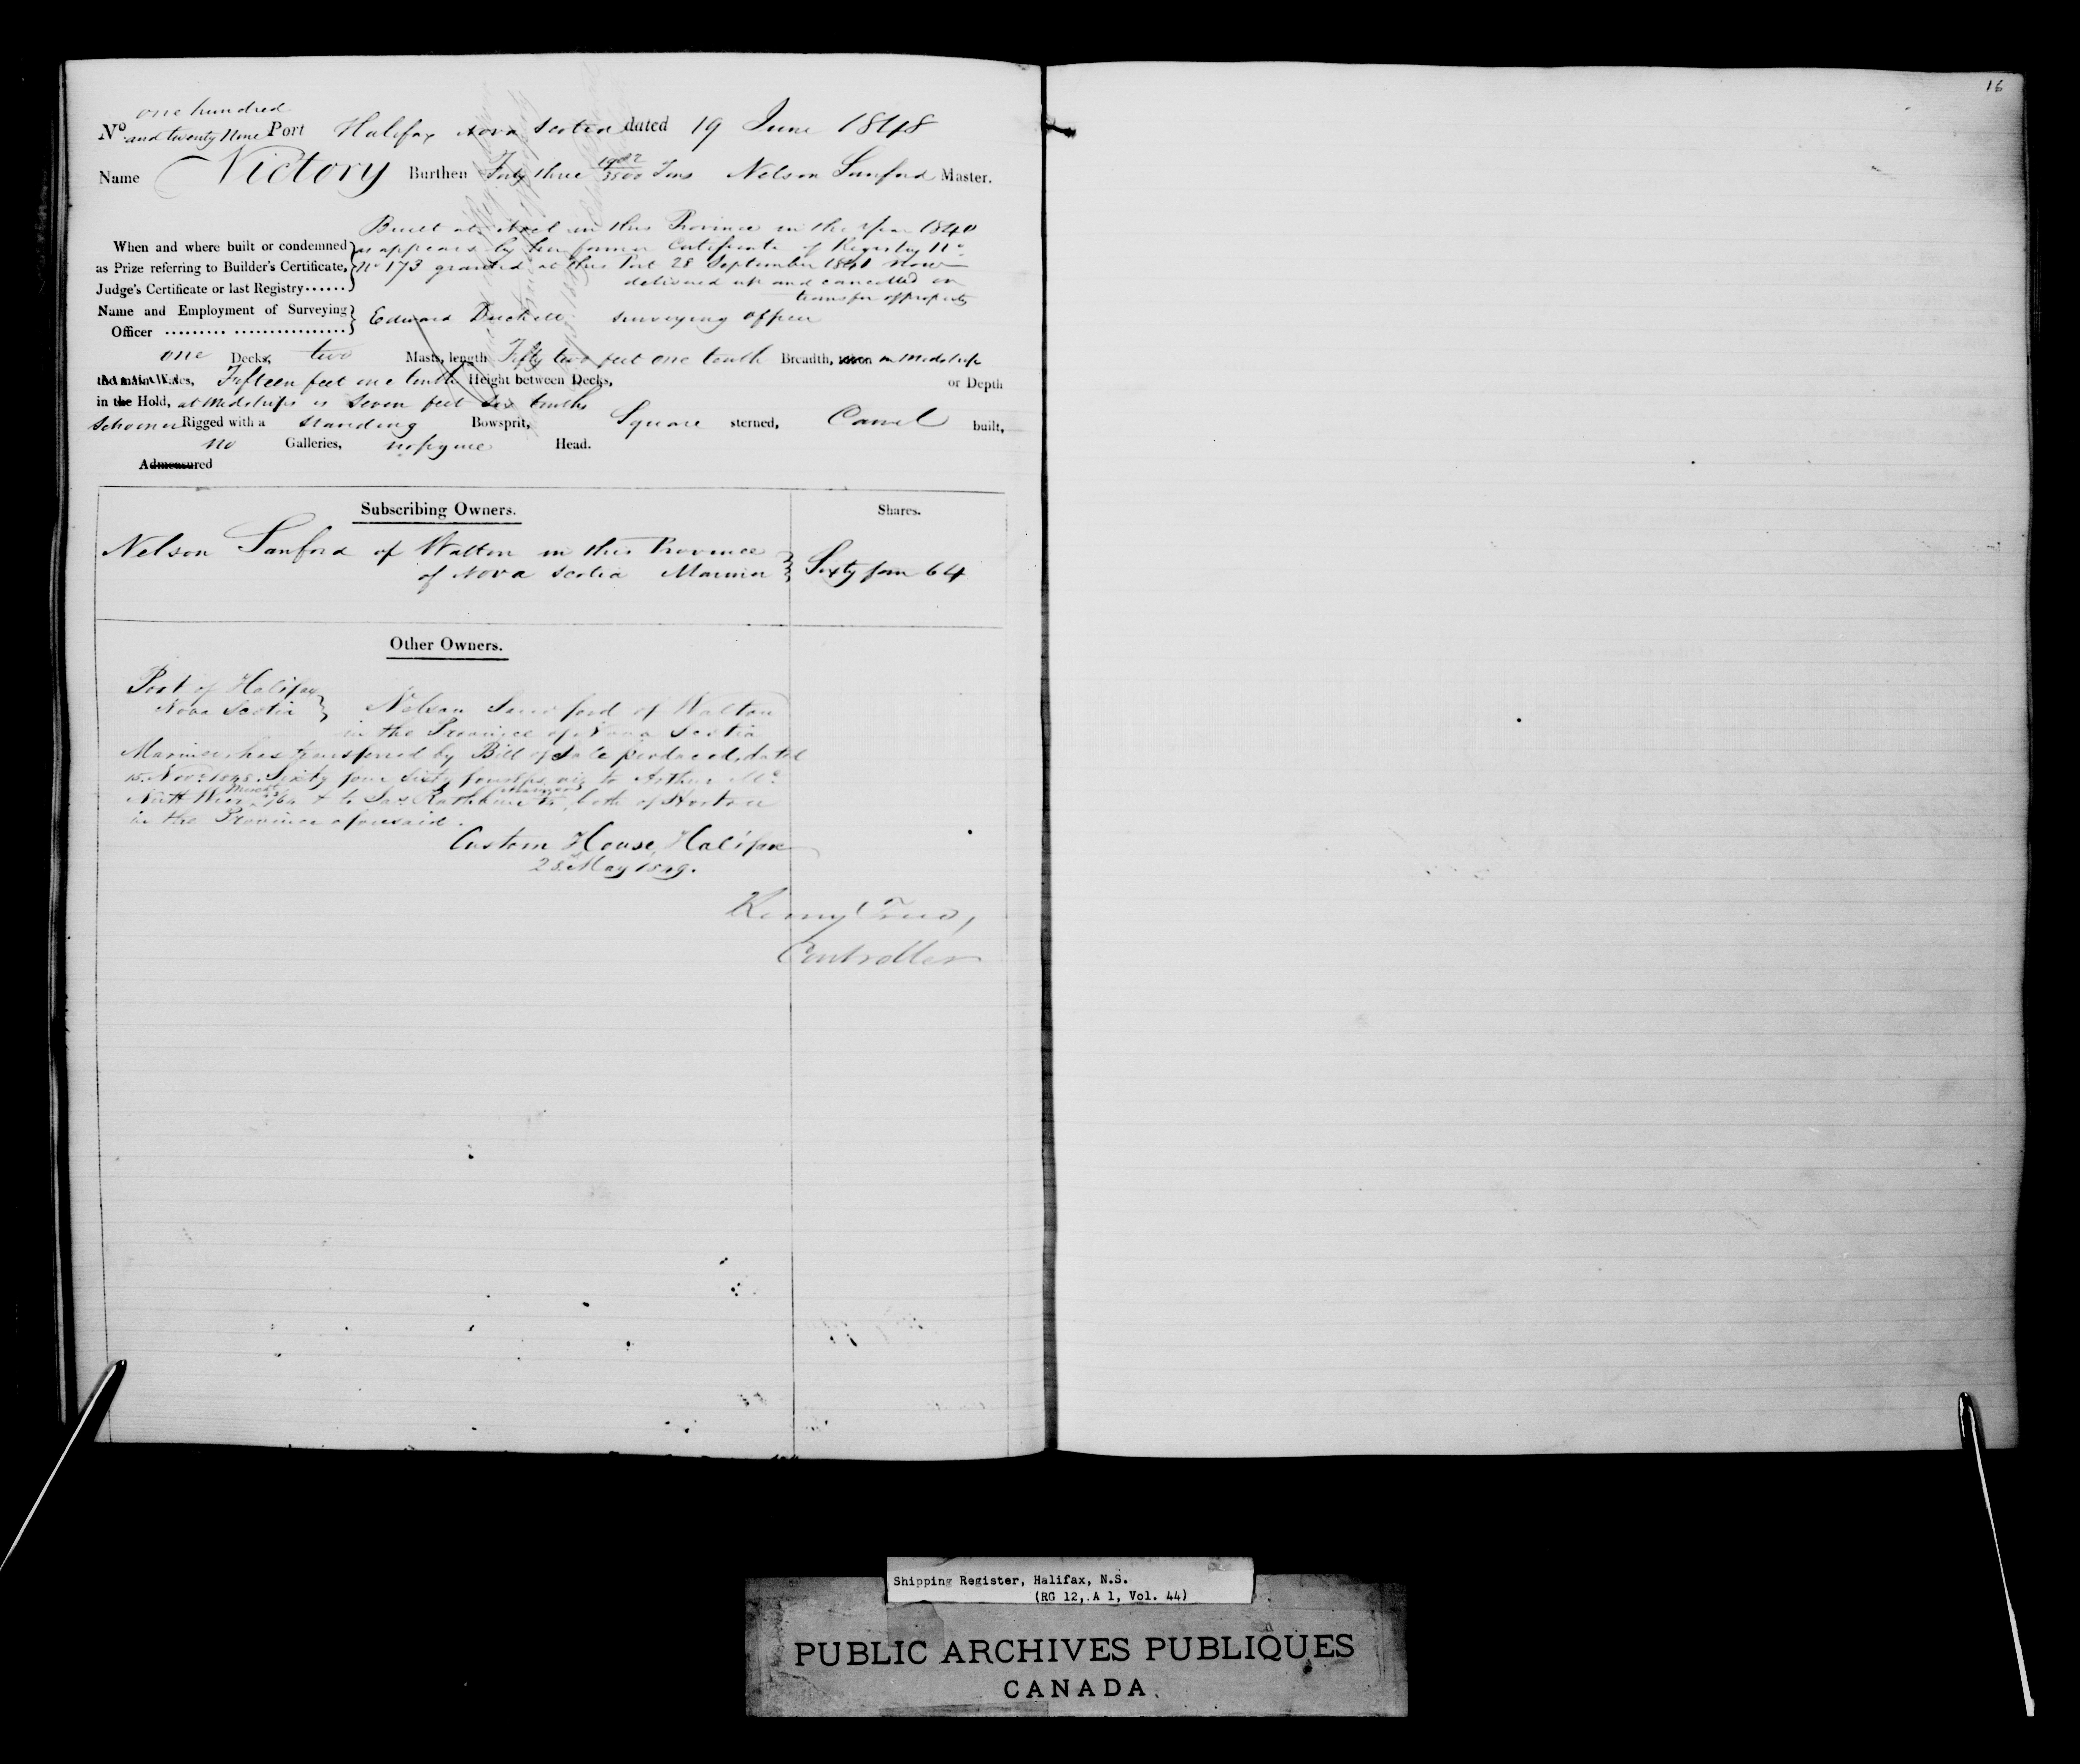 16
one hundred
No. and twenty Nine Port Halifax Nova Scotia dated 19 June 1848
Name Victory Burthen Forty three 1982/3500 Tons Nelson Sanford Master.
Built at in this Province in the year 1840
When and where built or condemned as appears by her former Certificate of Registry No
as Prize referring to Builder's Certificate, No 173 granted at this Port 28 September 1841 now
Judge's Certificate or last Registry...... delivered up and cancelled on
transfer of property
Name and Employment of Surveying
Officer Edward surveying officer
one Decks, two Masts, length Fifty two feet one tenth Breadth, in Midships
Wales, Fifteen feet one tenth Height between Decks, or Depth
in the Hold, at Midships is Seven feet six tenths
Schooner Rigged with a Standing Bowsprit, Square sterned, Carvel built,
no Galleries, no figure Head.
Admeasured
Subscribing Owners. Shares.
Nelson Sanford of Walton in this Province
of Nova Scotia Mariner Sixty four 64
Other Owners.
Port of Halifax
Nova Scotia Nelson Sandford of Walton
in the Province of Nova Scotia
Mariner, has transferred by Bill of Sale produced, dated
15 Novr 1848. Sixty four Sixty fourths, viz to Arthur Mc
Nutt to Jas Rathbune both of Horton
in the Province aforesaid.
Custom House, Halifax
28 May 1849.
Controller
Shipping Register, Halifax, N.S.
(RG 12, A 1, Vol. 44)
PUBLIC ARCHIVES PUBLIQUES
CANADA